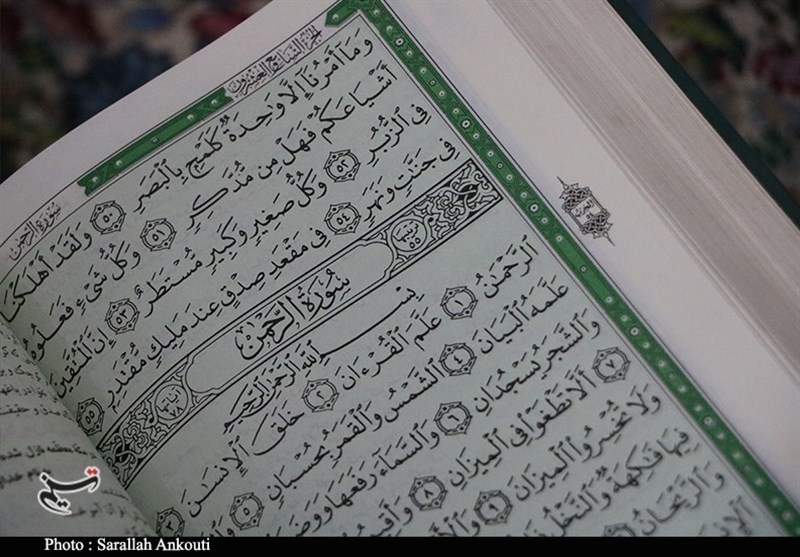 الجزء السابع والعشرون
سُورَةُ الرَّحْمَٰن
وَمَآ أَمْرُنَآ إِلَّا وَٰحِدَةٌ كَلَمْحٍۭ بِٱلْبَصَرِ ٥٠ وَلَقَدْ أَهْلَكْنَآ
أَشْيَاعَكُمْ فَهَلْ مِن مُّدَّكِرٍ ٥١ وَكُلُّ شَىْءٍ فَعَلُوهُ
فِى ٱلزُّبُرِ ٥٢ وَكُلُّ صَغِيرٍ وَكَبِيرٍ مُّسْتَطَرٌ ٥٣ إِنَّ ٱلْمُتَّقِينَ
فِى جَنَّٰتٍ وَنَهَرٍ ٥٤ فِى مَقْعَدِ صِدْقٍ عِندَ مَلِيكٍ مُّقْتَدِرٍۭ ٥٥
سُورَةُ الرَّحْمَٰن
بِسْمِ ٱللَّهِ ٱلرَّحْمَٰنِ ٱلرَّحِيمِ
ٱلرَّحْمَٰنُ ١ عَلَّمَ ٱلْقُرْءَانَ ٢ خَلَقَ ٱلْإِنسَٰنَ ٣
عَلَّمَهُ ٱلْبَيَانَ ٤ ٱلشَّمْسُ وَٱلْقَمَرُ بِحُسْبَانٍ ٥
وَٱلشَّجَرُ يَسْجُدَانِ ٦ وَٱلسَّمَآءَ رَفَعَهَا
٧ أَلَّا تَطْغَوْا۟ فِى ٱلْمِيزَانِ ٨
وَلَا تُخْسِرُوا۟ ٱلْمِيزَانَ ٩
فِيهَا فَٰكِهَةٌ وَٱلنَّخْلُ
وَٱلرَّيْحَانُ
تسنیم
Photo : Sarallah Ankouti